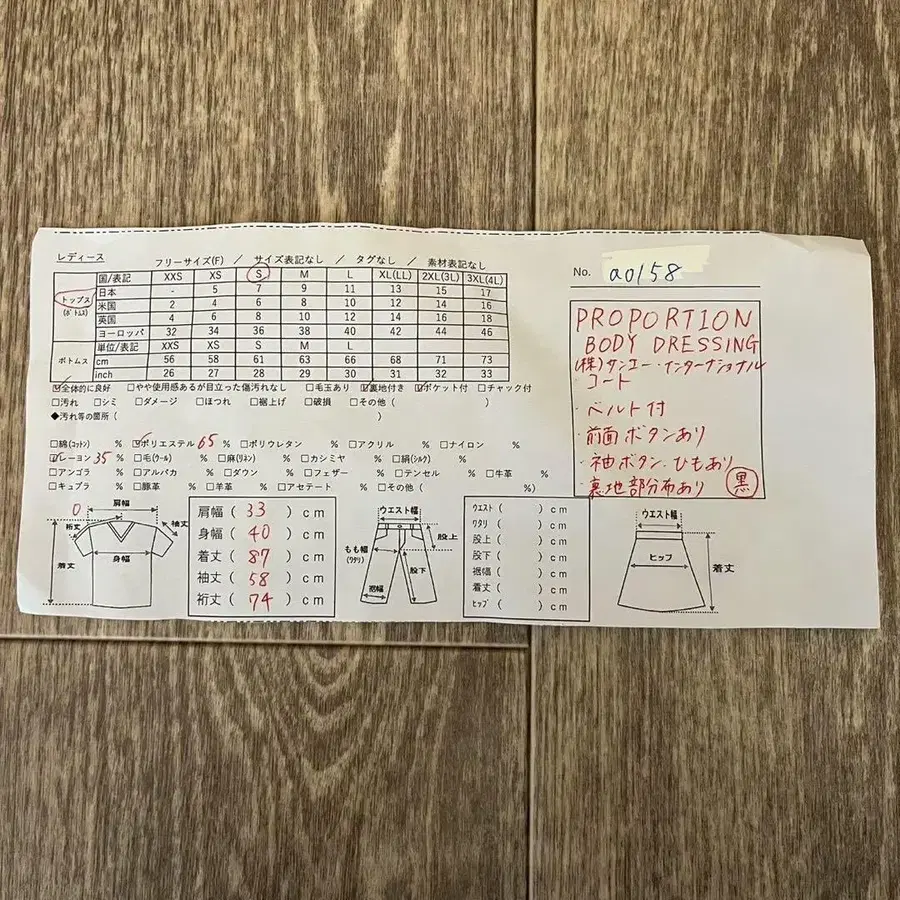 レディース
フリーサイズ(F) / サイズ表記なし / タグなし / 素材表記なし
トップス (ボトムス) 国/表記 XXS XS S M L XL(LL) 2XL(3L) 3XL(4L)
日本 - 5 7 9 11 13 15 17
米国 2 4 6 8 10 12 14 16
英国 4 6 8 10 12 14 16 18
ヨーロッパ 32 34 36 38 40 42 44 46
ボトムス 単位/表記 XXS XS S M L
cm 56 58 61 63 66 68 71 73
inch 26 27 28 29 30 31 32 33
☑全体的に良好 □やや使用感あるが目立った傷汚れなし □毛玉あり ☑裏地付き ☑ポケット付 □チャック付
□汚れ □シミ □ダメージ □ほつれ □裾上げ □破損 □その他 ( )
◆汚れ等の箇所 ( )
□綿(コットン) % ☑ポリエステル 65 % □ポリウレタン % □アクリル % □ナイロン %
☑レーヨン 35 % □毛(ウール) % □麻(リネン) % □カシミヤ % □絹(シルク) %
□アンゴラ % □アルパカ % □ダウン % □フェザー % □テンセル % □牛革 %
□キュプラ % □豚革 % □羊革 % □アセテート % □その他 ( %)
No. a0158
PROPORTION
BODY DRESSING
(株)サンエー・インターナショナル
コート
・ベルト付
・前面ボタンあり
・袖ボタン・ひもあり
・裏地部分布あり 黒
0
肩幅
裄丈
袖丈
身幅
着丈
肩幅 ( 33 ) cm
身幅 ( 40 ) cm
着丈 ( 87 ) cm
袖丈 ( 58 ) cm
裄丈 ( 74 ) cm
ウエスト幅
股上
もも幅
(ワタリ)
股下
裾幅
ウエスト ( ) cm
ワタリ ( ) cm
股上 ( ) cm
股下 ( ) cm
裾幅 ( ) cm
着丈 ( ) cm
ヒップ ( ) cm
ウエスト幅
ヒップ
着丈